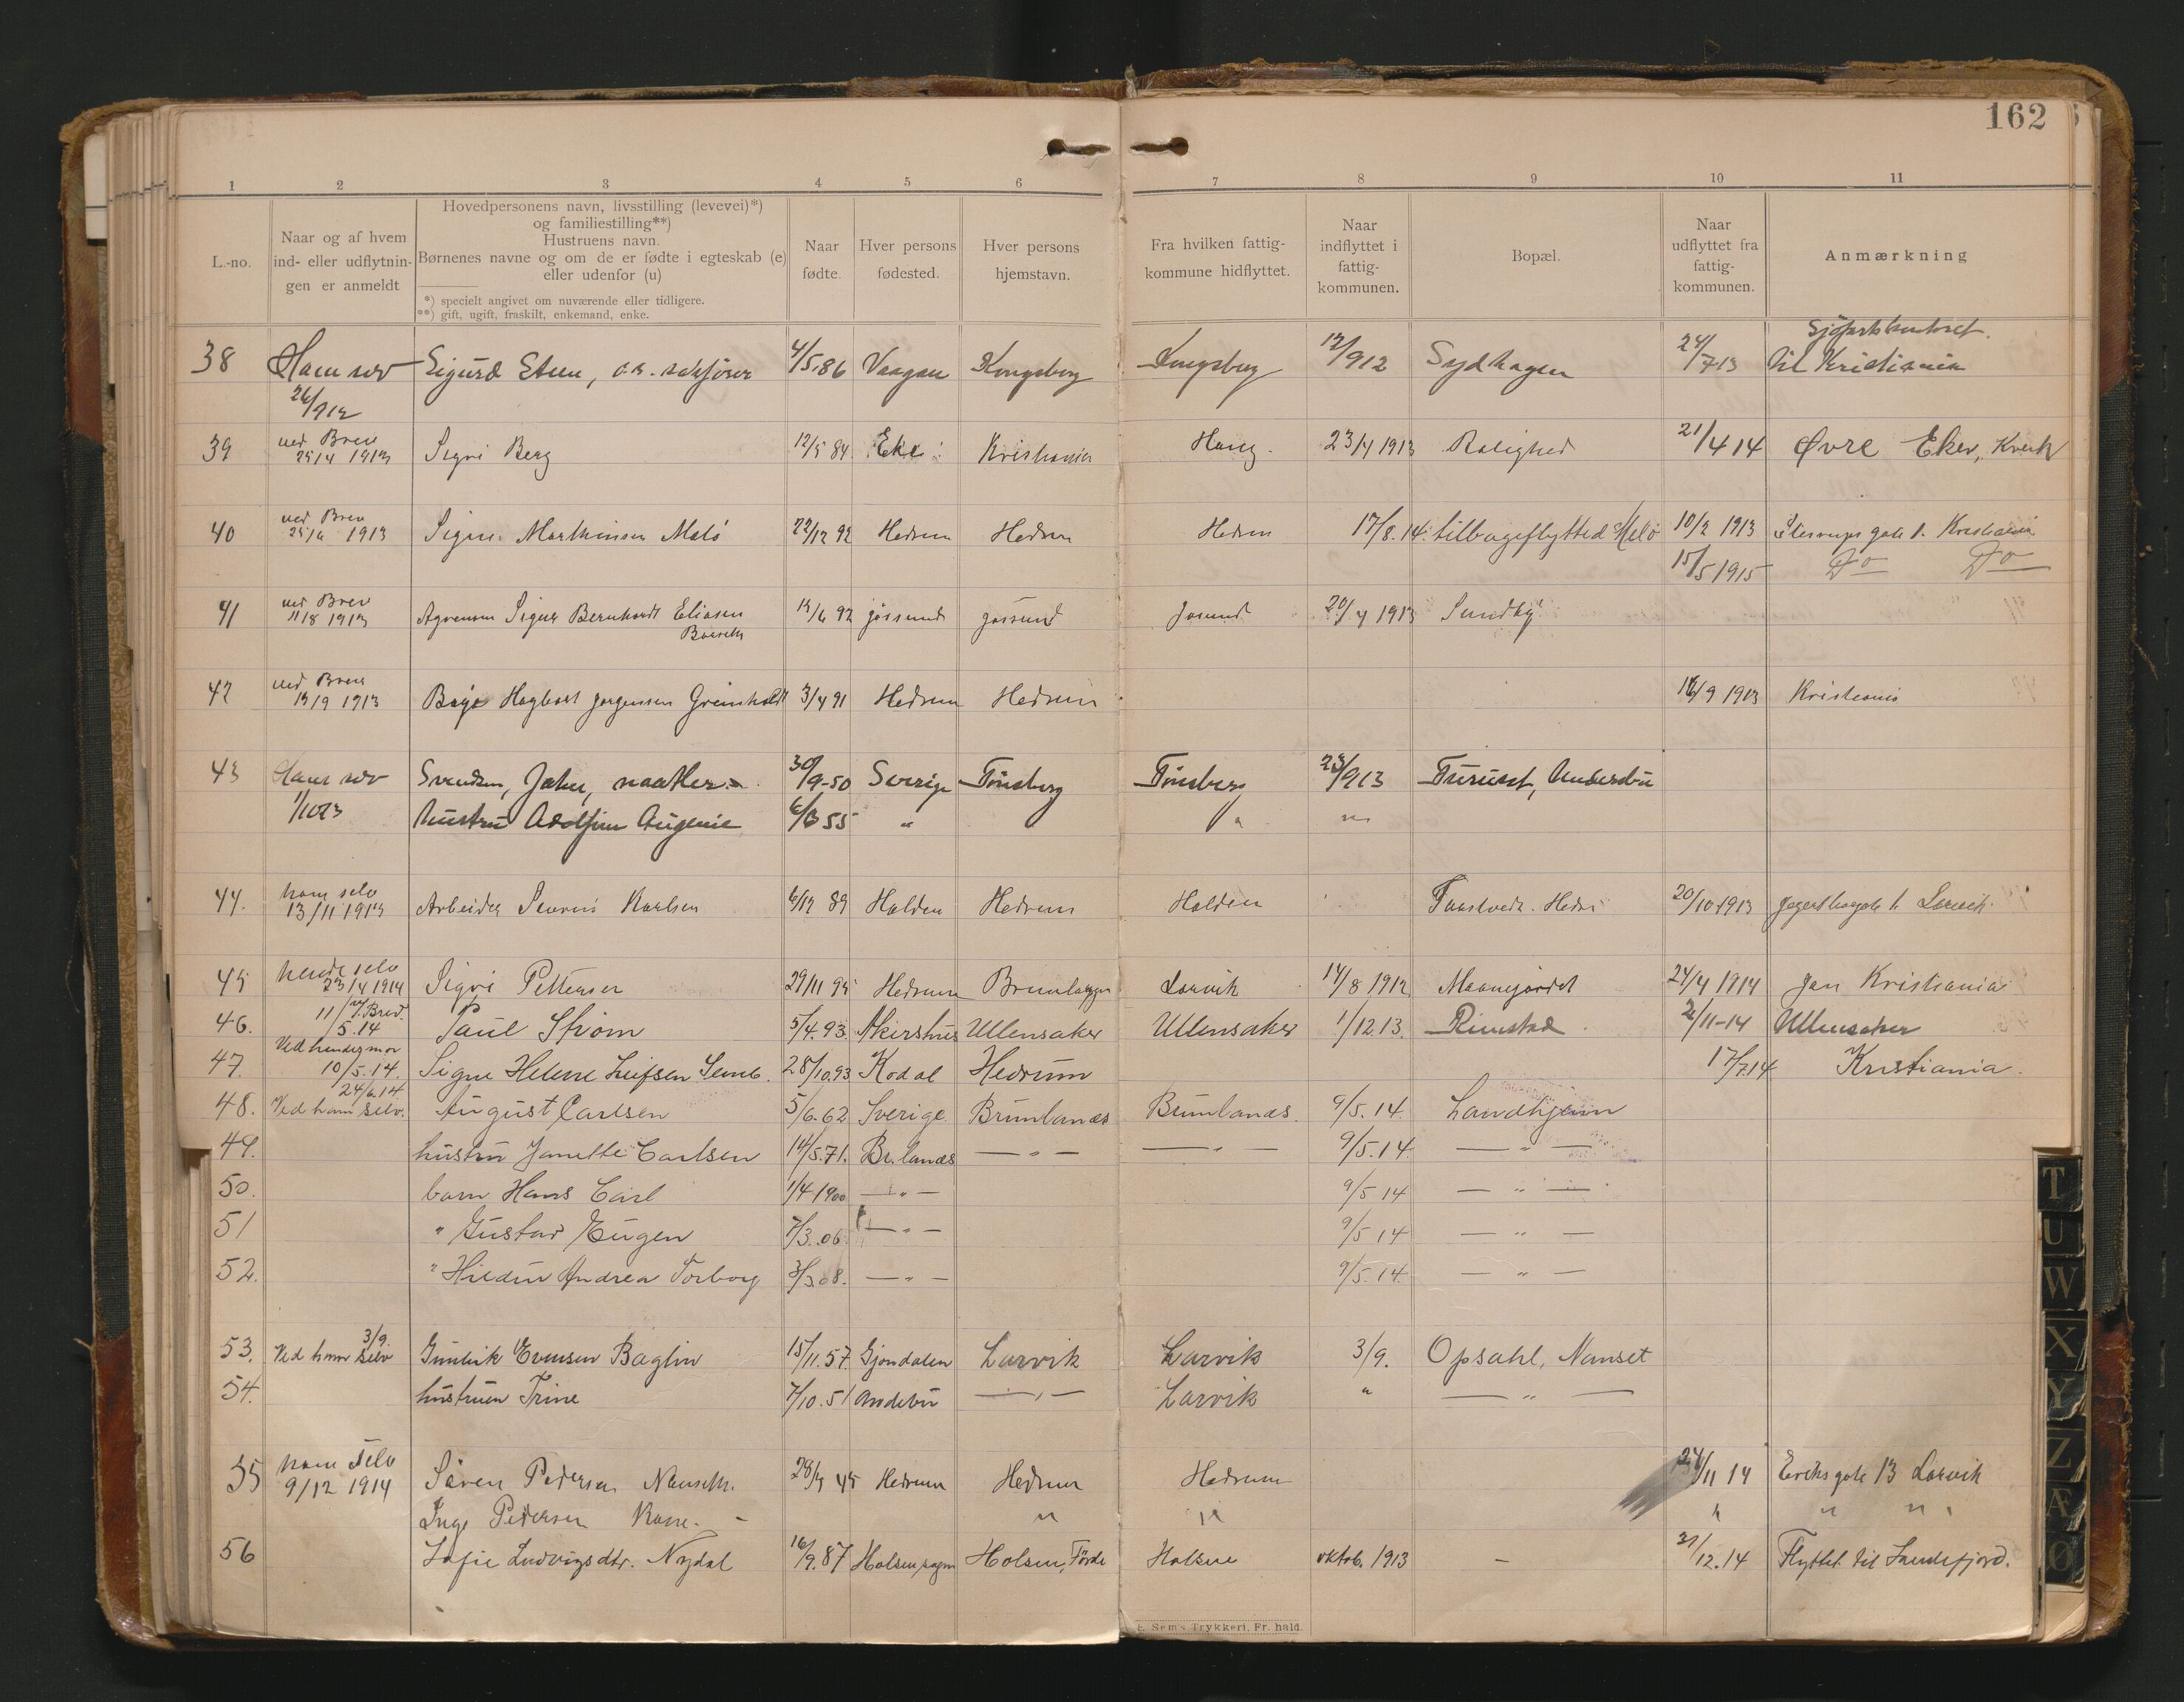 162
1 2 3 4 5 6 7 8 9 10 11
L.-no.
Naar og af hvem
ind- eller udflytnin-
gen er anmeldt
Hovedpersonens navn, livsstilling (levevei)*)
og familiestilling**)
Hustruens navn.
Børnenes navne og om de er fødte i egteskab (e)
eller udenfor (u)
*) specielt angivet om nuværende eller tidligere.
**) gift, ugift, fraskilt, enkemand, enke.
Naar
fødte.
Hver persons
fødested.
Hver persons
hjemstavn.
Fra hvilken fattig-
kommune hidflyttet.
Naar
indflyttet i
fattig-
kommunen.
Bopæl.
Naar
udflyttet fra
fattig-
kommunen.
Anmærkning
38 Ham selv Sigurd 4/5.86 Kongsberg Kongsberg 12/912 Sydhagen 24/713 til Kristiania
26/912
39 ved Brev 25/4 1913 Sigri Berg 12/5 84 Eker Kristiania Haug. 23/4 1913 Rolighed 21/4 14 Øvre Eker,
40 ved Brev 25/4 1913 Signe Marthinsen Melø 22/12 92 Hedrum Hedrum Hedrum 17/8.14. tilbageflytted Melø 10/2 1913 gate 1. Kristiania
15/5 1915 Do Do
41 ved Brev 11/8 1913 Sigur Bernhardt Eliasen 92 Jøssund Jøssund Jøsund 20/4 1913 Sundby
42 ved Brev 13/9 1913 Hagbart Jørgensen Grimholdt 3/4 91 Hedrum Hedrum 16/9 1913 Kristiania
43 Ham selv Svendsen, 30/9-50 Sverige Tønsberg Tønsberg 23/913
1/1013 Hustru Adolfine Augenie 6/3 55 " " "
44. ham selv 13/11 1913 Arbeider Severin Karlsen 6/12 89 Halden Hedrum Halden 20/10 1913 Larvik
45 hende selv 23/4 1914 Sigri Pettersen 29/11 95 Hedrum Brunlanges Larvik 14/8 1912 Maanejordet 24/4 1914 Kristiania
46. 11/5.14 Brev. Paul Strøm 5/4.93. Akershus Ullensaker Ullensaker 1/12.13. Rimstad 2/11-14 Ullensaker
47. Ved hendes mor 10/5.14. Signe Helene Leifsen Semb. 28/10.93 Kodal Hedrum 17/7.14 Kristiania.
48. 24/6.14 Ved ham selv. August Carlsen 5/6.62 Sverige Brunlanæs Brunlanæs. 9/5.14. Landhjem
49. hustru Janette Carlsen 14/5.71. Br.lanæs — " — — " — 9/5.14. — " —
50. barn Hans Carl 1/4 1900 — " — 9/5 14 — " —
51 " Gustav Eugen 7/3.06. — " — 9/5 14 — " —
52. " Hildur Andrea Torborg 3/3 08. — " — 9/5.14. — " —
53. 3/9. Ved ham selv Gunerik Evensen Baglin 15/11.57 Gjøndalen Larvik Larvik 3/9. Opsahl, Nanset
54. hustruen Trine 7/10.51 Andebu — " — Larvik " — " —
55 ham selv 9/12 1914 Søren Pedersen Nanseth. 28/4 45 Hedrum Hedrum Hedrum 24/11 14 Eriks gate 13 Larvik
Inge Pedersen Kone. - " " " " "
56 Sofie Ludvigsdtr. Nydal 16/9.87 Holsen sogn Holsen, Førde Holsen oktob. 1913 — 31/12.14 Flyttet til Sandefjord.
E. Sem's Trykkeri, Fr. hald.
T
U
W
X
Y
Z
Æ
Ø